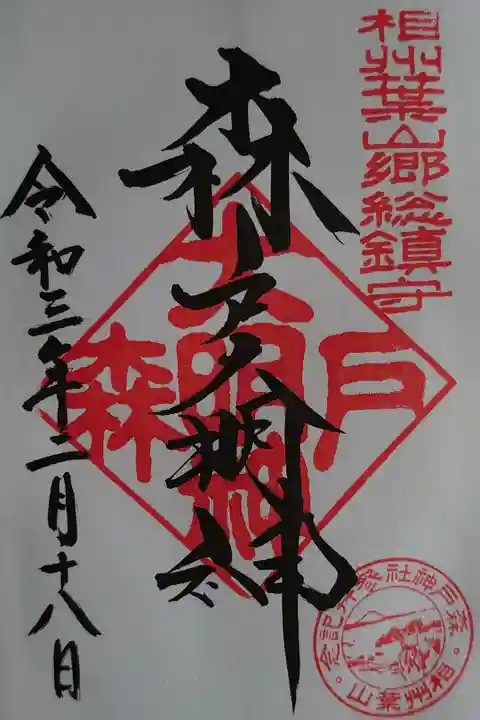 相州葉山郷総鎮守
森戸大明神
森戸大明神
令和三年二月十八日
森戸神社参拝記念
相州葉山